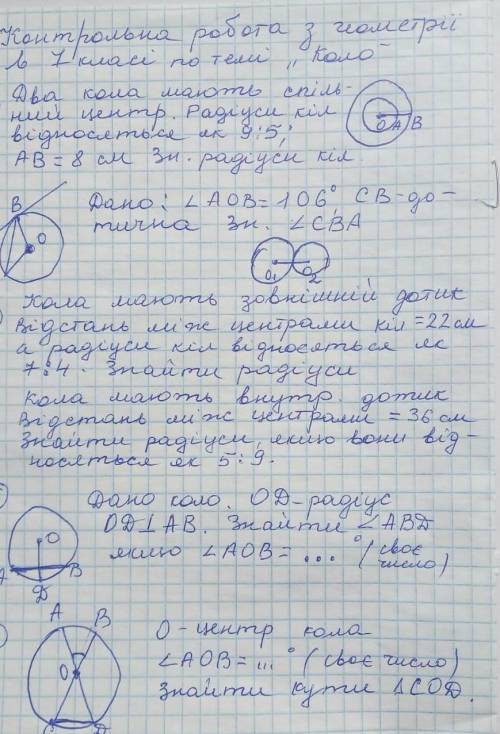 Контрольна робота з геометрії
в 7 класі по темі „Коло"
Два кола мають спіль-
ний центр. Радіуси кіл
відносяться як 9:5;
O A B
AB = 8 см Зн. радіуси кіл.
B
O
Дано: ∠AOB = 106°, CB-до-
тична Зн. ∠CBA
O₁ O₂
Кола мають зовнішній дотик
Відстань між центрами кіл =22 см
а радіуси кіл відносяться як
7:4. Знайти радіуси
Кола мають внутр. дотик
Відстань між центрами = 36 см
Знайти радіуси, якщо вони від-
носяться як 5:9.
Дано коло. OD-радіус
OD⊥AB. Знайти ∠ABD
якщо ∠AOB = ...° (своє
число)
O
A B
D
A B
O
C D
O-центр кола
∠AOB = ...° (своє число)
Знайти кути ΔCOD.